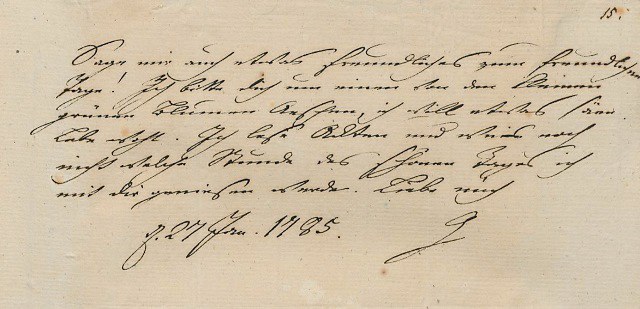 15.
Sage mir auch etwas freundliches zum freundlichen
Tage! Ich bitte dich um einen von den kleinen
grünen Blumen Aeschen, ich will etwas säen.
Lebe wohl. Ich lese Ackten und weis noch
nicht welche Stunde des schönen Tages ich
mit dir geniesen werde. Liebe mich
d. 27 Jan. 1785. G